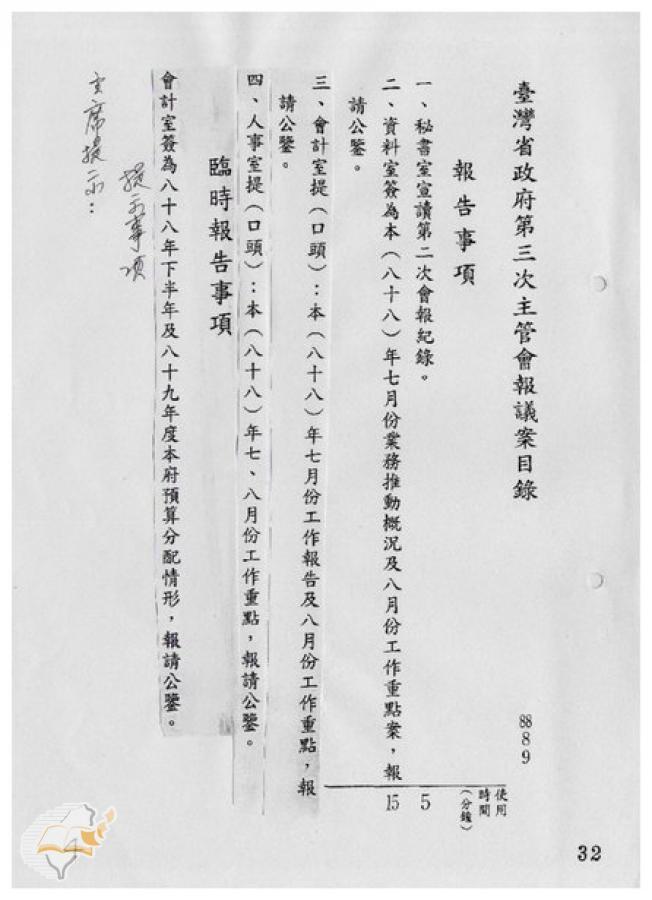 臺灣省政府第三次主管會報議案目錄
88 8 9
使用時間(分鐘)
報告事項
一、秘書室宣讀第二次會報紀錄。 5
二、資料室簽為本(八十八)年七月份業務推動概況及八月份工作重點案,報 15
請公鑒。
三、會計室提(口頭):本(八十八)年七月份工作報告及八月份工作重點,報
請公鑒。
四、人事室提(口頭):本(八十八)年七、八月份工作重點,報請公鑒。
臨時報告事項
會計室簽為八十八年下半年及八十九年度本府預算分配情形,報請公鑒。
提示事項
主席提示:
32